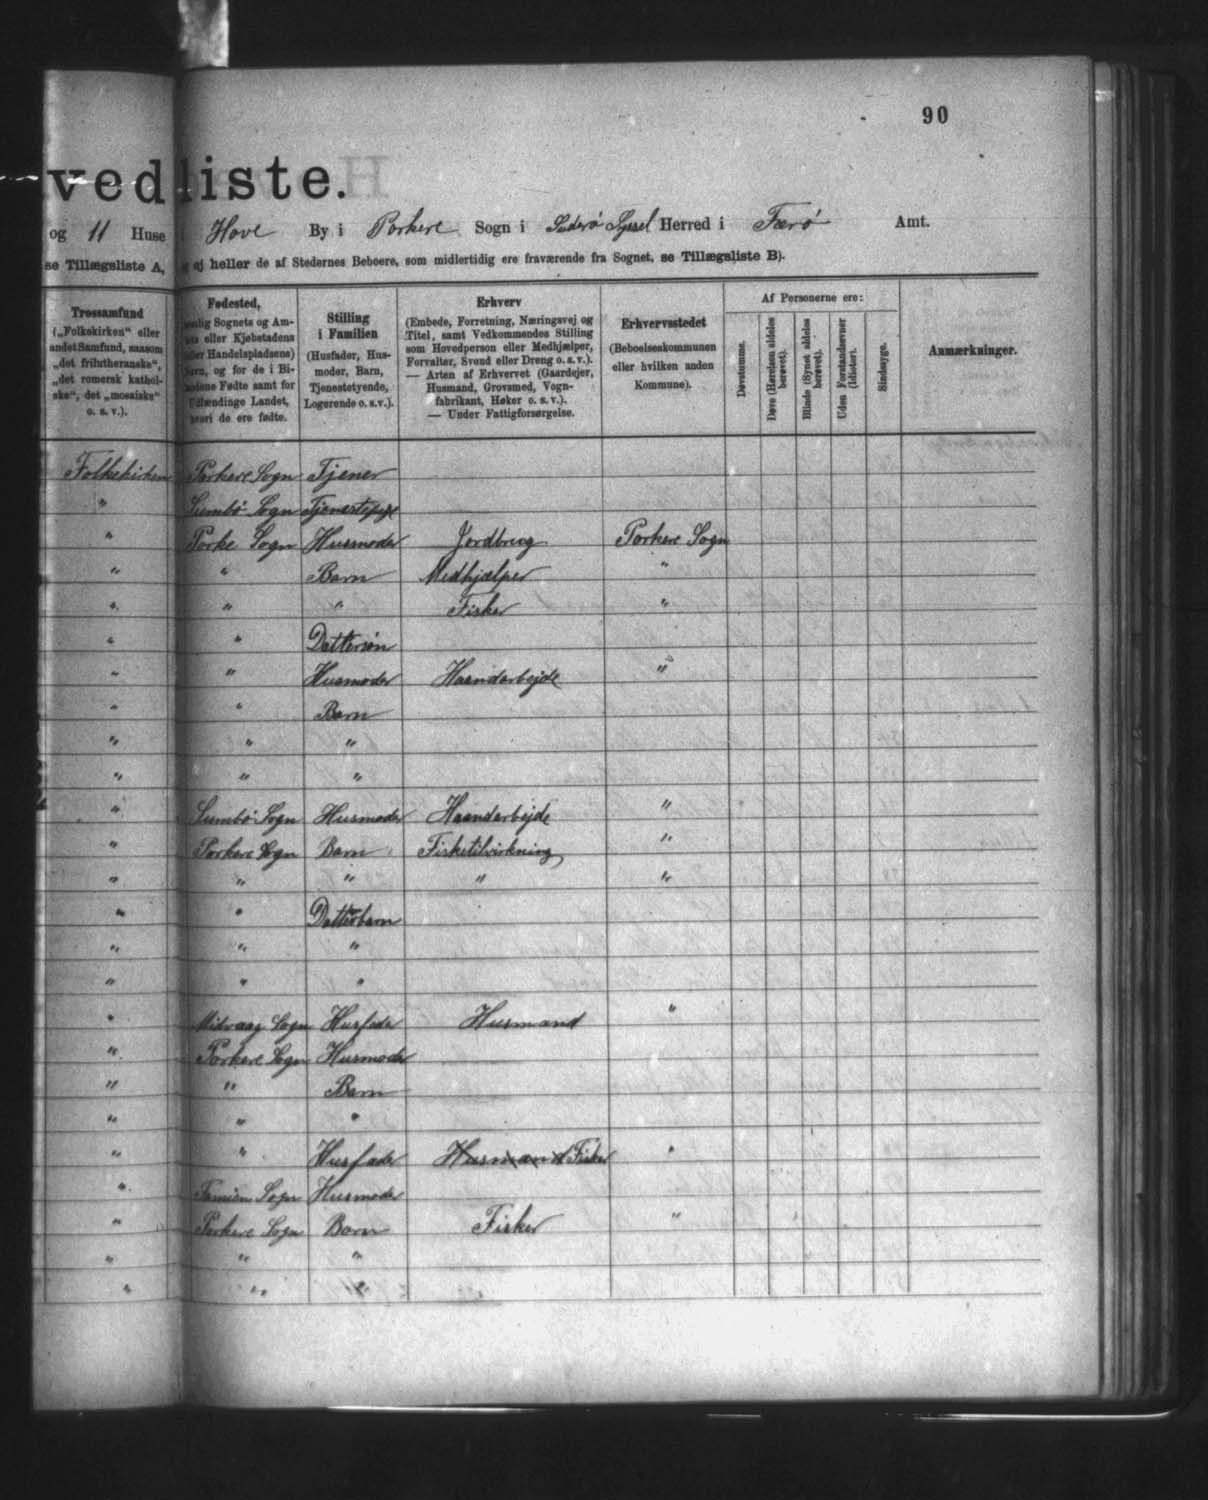 90
vedliste.
og 11 Huse i Hove By i Porkere Sogn i Suderø Syssel Herred i Færø Amt.
se Tillægsliste A, ej heller de af Stedernes Beboere, som midlertidig ere fraværende fra Sognet, se Tillægsliste B).
Af Personerne ere:
Trossamfund
(„Folkekirken“ eller
andet Samfund, saasom
„det frilutheranske“,
„det romersk kathol-
ske“, det „mosaiske“
o. s. v.).
Fødested,
nemlig Sognets og Am-
tets eller Kjøbstadens
(eller Handelspladsens)
Navn, og for de i Bi-
landene Fødte samt for
Udlændinge Landet,
hvori de ere fødte.
Stilling
i Familien
(Husfader, Hus-
moder, Barn,
Tjenestetyende,
Logerende o. s. v.).
Erhverv
(Embede, Forretning, Næringsvej og
Titel, samt Vedkommendes Stilling
som Hovedperson eller Medhjælper,
Forvalter, Svend eller Dreng o. s. v.).
— Arten af Erhvervet (Gaardejer,
Husmand, Grovsmed, Vogn-
fabrikant, Høker o. s. v.).
— Under Fattigforsørgelse.
Erhvervsstedet
(Beboelseskommunen
eller hvilken anden
Kommune).
Døvstumme.
Døve (Hørelsen aldeles
berøvet).
Blinde (Synet aldeles
berøvet).
Uden Forstandsevner
(Idioter).
Sindssyge.
Anmærkninger.
Folkekirken Porkere Sogn Tjener
" Sumbø Sogn Tjenestepige
" Porke Sogn Husmoder Jordbrug Porkere Sogn
" " Barn Medhjælper "
" " " Fisker "
" " Dattersøn
" " Husmoder Haandarbejde "
" " Barn
" " "
" " "
" Sumbø Sogn Husmoder Haandarbejde "
" Porkere Sogn Barn Fisketilvirkning "
" " " " "
" " Datterbarn
" " "
" " "
" Midvaag Sogn Husfader Husmand "
" Porkere Sogn Husmoder
" " Barn
" " "
" " Husfader Husmand Fisker "
" Famien Sogn Husmoder
" Porkere Sogn Barn Fisker "
" " "
" " "